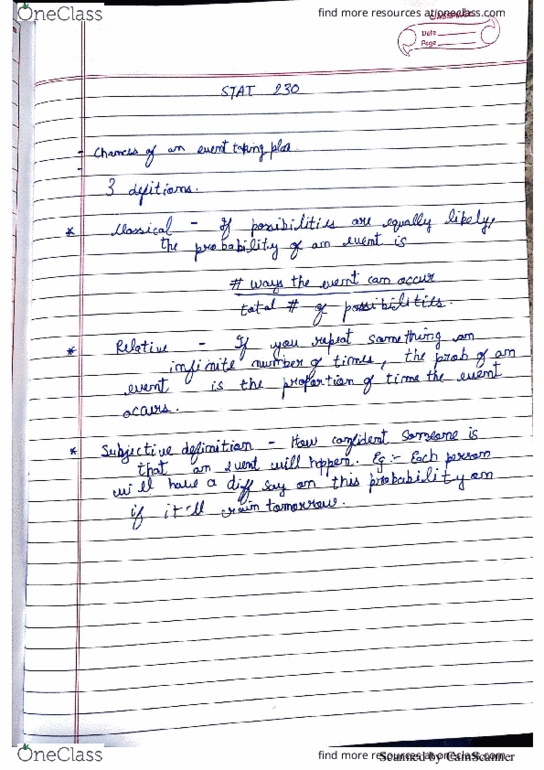 OneClass
find more resources at oneclass.com
Date
Page
STAT 230
- Chances of an event taking place.
3 defitions.
* Classical - If possibilities are equally likely,
the probability of an event is
# ways the event can occur
total # of possibilities.
* Relative - If you repeat something an
infinite number of times, the prob of an
event is the proportion of time the event
occurs.
* Subjective definition - How confident someone is
that an event will happen. Eg:- Each person
will have a diff say on this probability on
if it'll rain tomorrow.
OneClass
find more resources at oneclass.com
Scanned by CamScanner